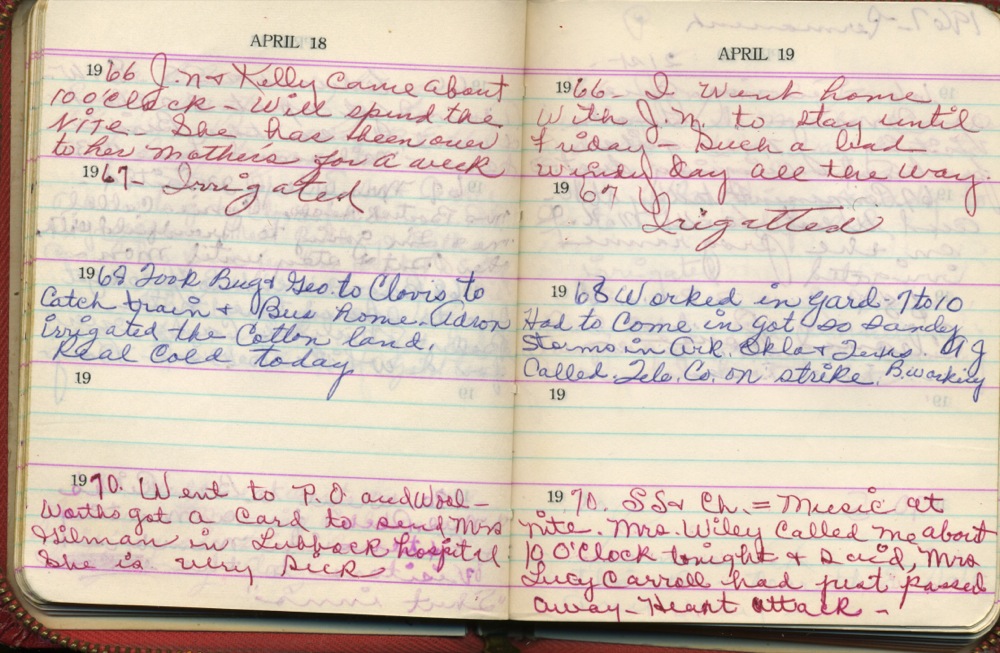 APRIL 18
1966 J.N & Kelly Came About
10 O'Clock - Will spend the
Nite. She has been over
to her mother's for a week
1967- Irrigated
1968 Took Bug & Geo. to Clovis to
Catch train & Bus home. Adron
irrigated the Cotton land.
Real Cold today
19
1970. Went to P.O. and Wool-
worths got a Card to send Mrs
Hilman in Lubbock hospital
She is very sick
APRIL 19
1966- I went home
with J.N. to stay until
Friday - Such a bad
windy day all the way.
1967
Irigatted
1968 Worked in yard - 7 to 10
Had to Come in got so sandy
storms in Ark. Okla & Texas. A J
Called. Tele. Co. on strike. B. working
19
1970. SS & Ch. = Music at
nite. Mrs. Wiley Called me about
10 O'Clock tonight & said, Mrs
Lucy Carroll had just passed
away - Heart attack -